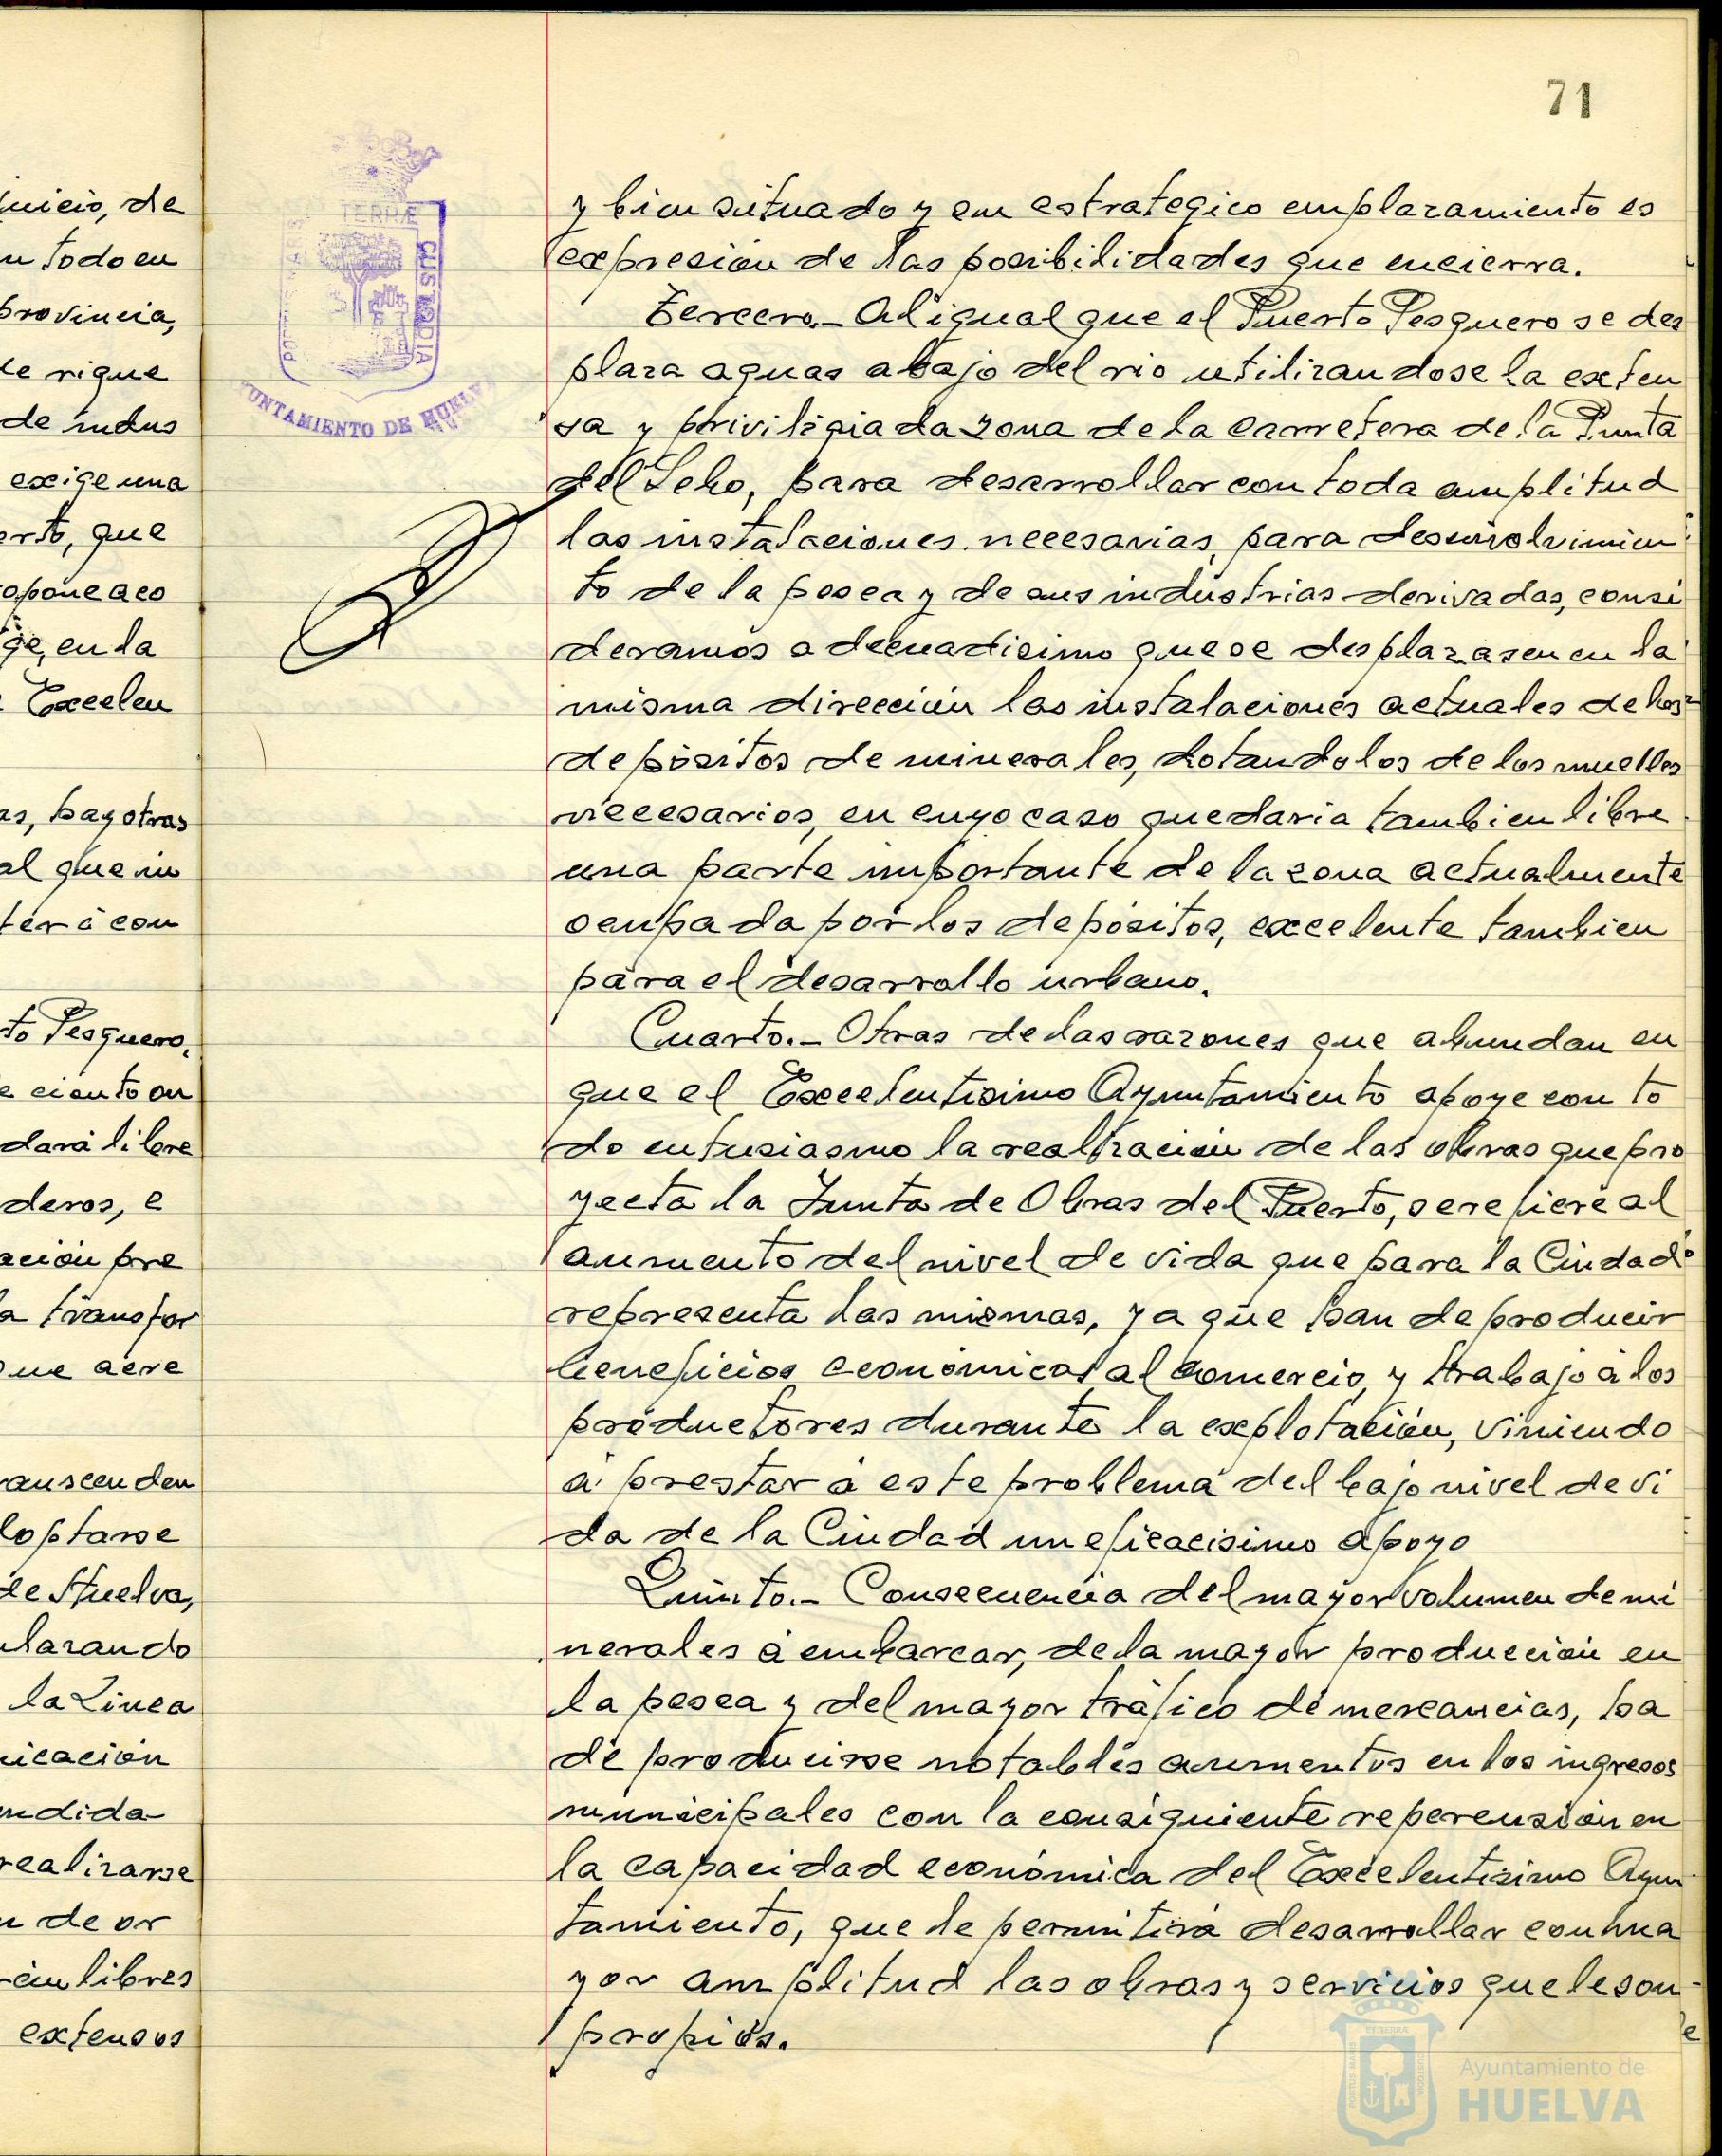 71
y bien situado y en estrategico emplazamiento es
expresión de las posibilidades que encierra.
Tercero.- Al igual que el Puerto Pesquero se des
plaza aguas abajo del rio utilizandose la exten
sa y privilegiada zona de la carretera de la Punta
del Sebo, para desarrollar con toda amplitud
las instalaciones necesarias para desenvolvimien
to de la pesca y de sus industrias derivadas, consi
deramos adecuadisimo que se desplazasen en la
misma dirección las instalaciones actuales de los
depósitos de minerales, dotandolos de los muelles
necesarios, en cuyo caso quedaria tambien libre
una parte importante de la zona actualmente
ocupada por los depósitos, excelente tambien
para el desarrollo urbano.
Cuarto.- Otras de las razones que abundan en
que el Excelentisimo Ayuntamiento apoye con to
do entusiasmo la realización de las obras que pro
yecta la Junta de Obras del Puerto, se refiere al
aumento del nivel de vida que para la Ciudad
representa las mismas, ya que han de producir
beneficios económicos al comercio, y trabajo á los
productores durante la explotación, viniendo
á prestar á este problema del bajo nivel de vi
da de la Ciudad un eficacisimo apoyo
Quinto.- Consecuencia del mayor volumen de mi
nerales á embarcar, de la mayor producción en
la pesca y del mayor tráfico de mercancias, ha
de producirse notables aumentos en los ingresos
municipales con la consiguiente repercusión en
la capacidad económica del Excelentisimo Ayun
tamiento, que le permitirá desarrollar con ma
yor amplitud las obras y servicios que le son
propios.
TERRÆ
CUSTODIA
UNTAMIENTO DE HUELV
nicio, de
n todo en
provincia,
le rigue
de indus
exige una
erto, que
opone aco
ge, en la
Excelen
as, hay otras
al que in
terá con
to Pesquero,
e ciento on
dará libre
deros, e
ación pre
a transfor
que acre
ranscenden
loptarse
de Huelva,
ularando
la Linea
nicación
ndida
realizarse
n de or
rán libres
extensos
Ayuntamiento de
HUELVA